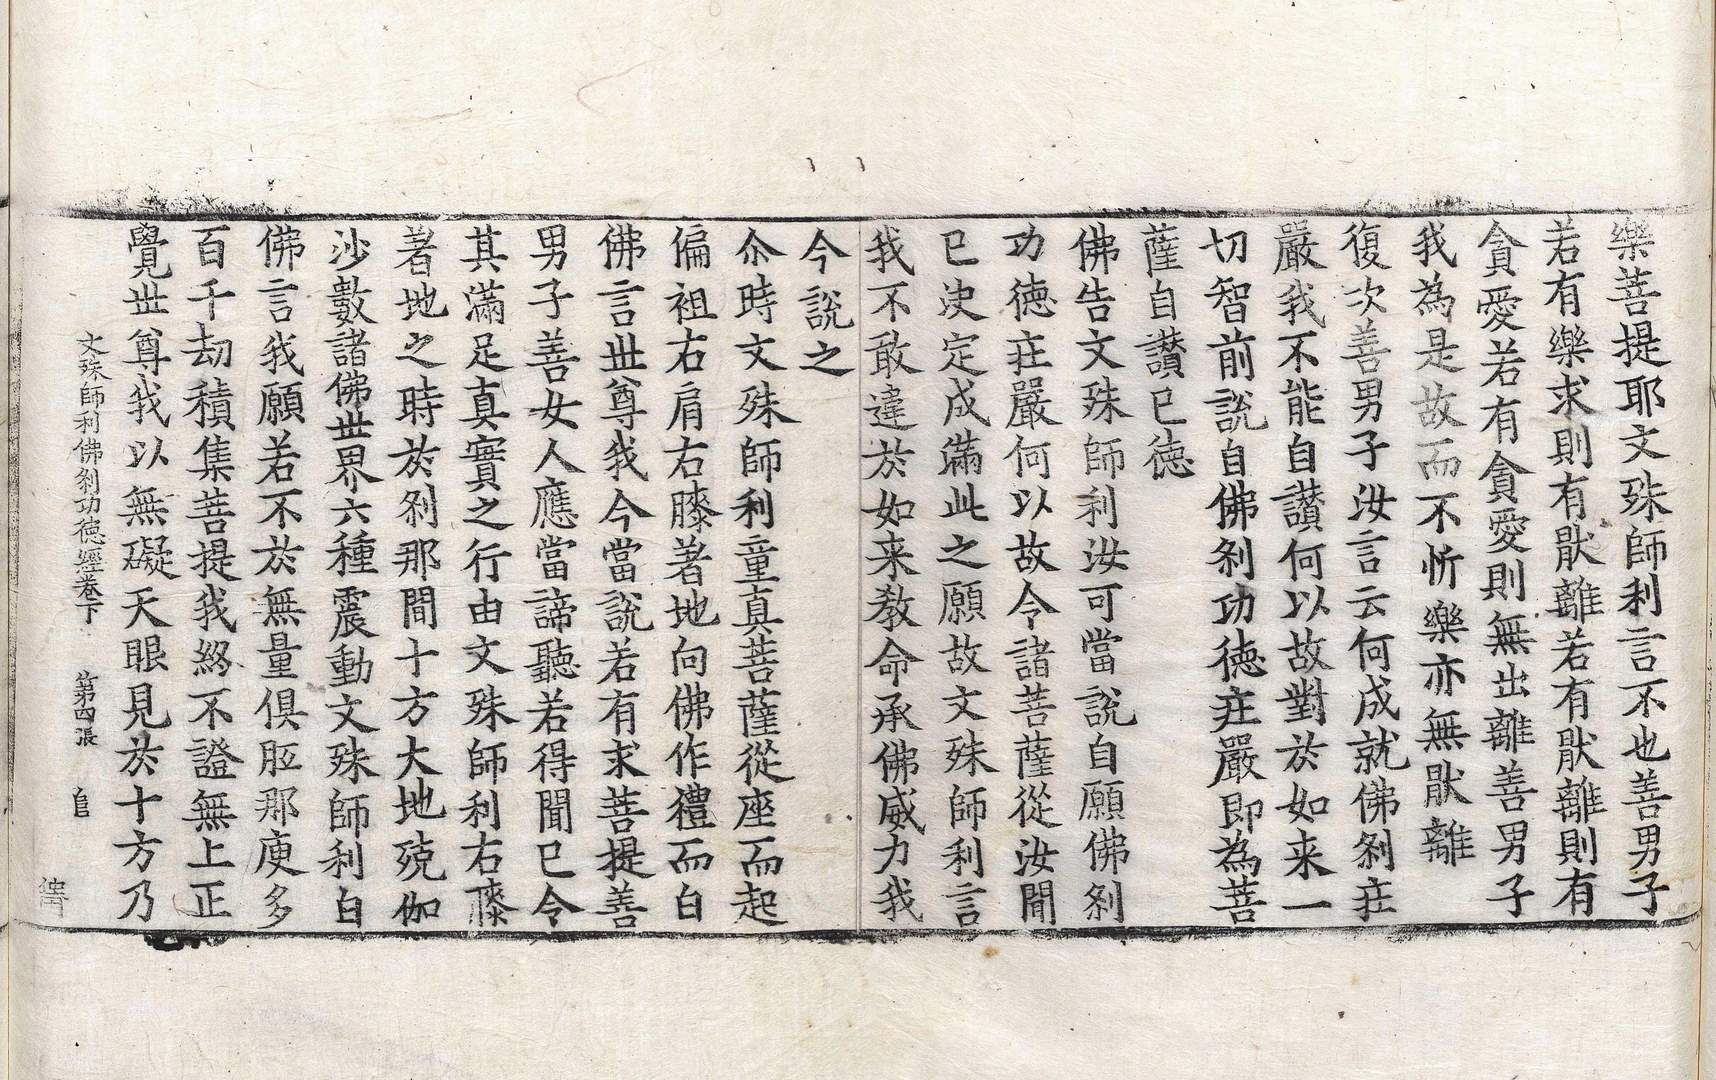 樂菩提耶文殊師利言不也善男子
若有樂求則有猒離若有猒離則有
貪愛若有貪愛則無出離善男子
我為是故而不忻樂亦無猒離
復次善男子汝言云何成就佛剎莊
嚴我不能自讚何以故對於如来一
切智前說自佛剎功德莊嚴即為菩
薩自讚已德
佛告文殊師利汝可當說自願佛剎
功德莊嚴何以故令諸菩薩從汝聞
已决定成滿此之願故文殊師利言
我不敢違於如来教命承佛威力我
今說之
尒時文殊師利童真菩薩從座而起
偏袒右肩右膝著地向佛作禮而白
佛言世尊我今當說若有求菩提善
男子善女人應當諦聽若得聞已令
其滿足真實之行由文殊師利右膝
著地之時於剎那間十方大地殑伽
沙數諸佛世界六種震動文殊師利白
佛言我願若不於無量俱胝那庾多
百千劫積集菩提我終不證無上正
覺世尊我以無礙天眼見於十方乃
文殊師利佛剎功德經卷下 第四張